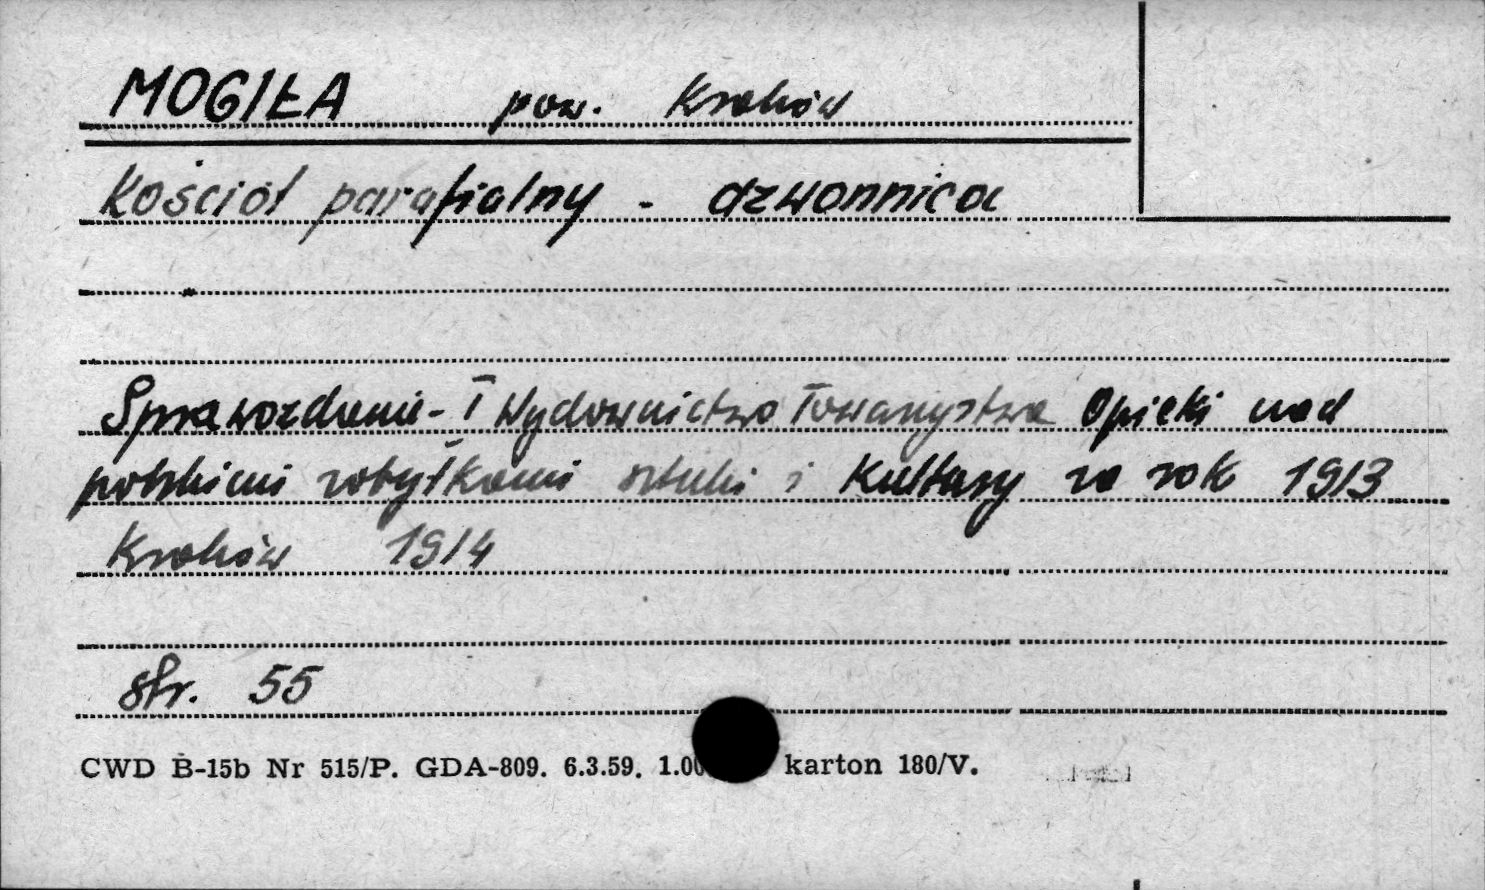 MOGIŁA pow. Kraków
Kościół parafialny - dzwonnica
Sprawozdanie - I Wydownictwo Towarzystwa Opieki nad
polskimi zabytkami sztuki i Kultury za rok 1913
Kraków 1914
str. 55
CWD B-15b Nr 515/P. GDA-809. 6.3.59. karton 180/V.